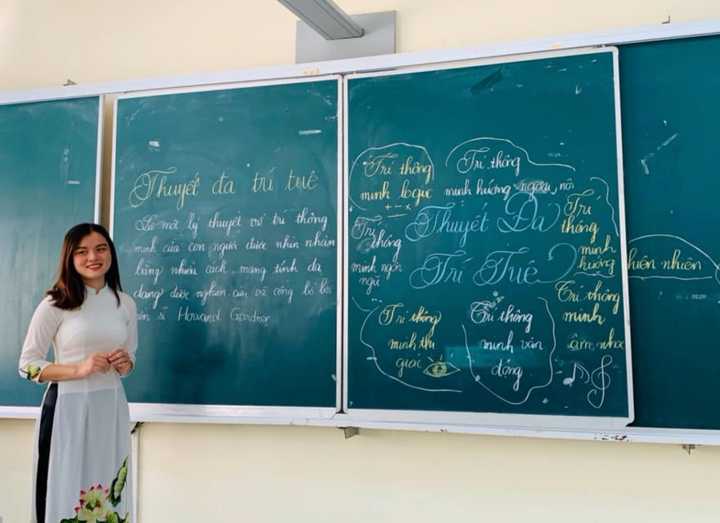 Thuyết đa trí tuệ
Là một lý thuyết về trí thông
minh của con người được nhìn nhận
bằng nhiều cách, mang tính đa
dạng được nghiên cứu và công bố bởi
tiến sĩ Howard Gardner
Trí thông
minh logic
Trí thông
minh hướng ngoại, nội
Trí
thông
minh
hướng
thiên nhiên
Thuyết Đa
Trí Tuệ?
Trí
thông
minh ngôn
ngữ
Trí thông
minh
âm nhạc
Trí thông
minh thị
giác
Trí thông
minh vận
động